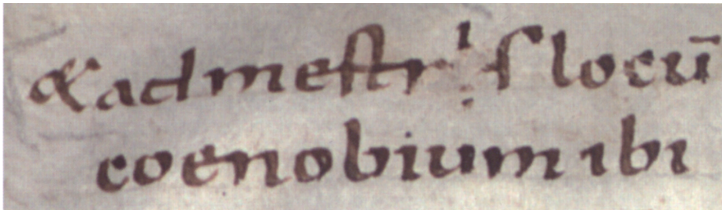 & ad mestr' ſ locū
coenobium ibi